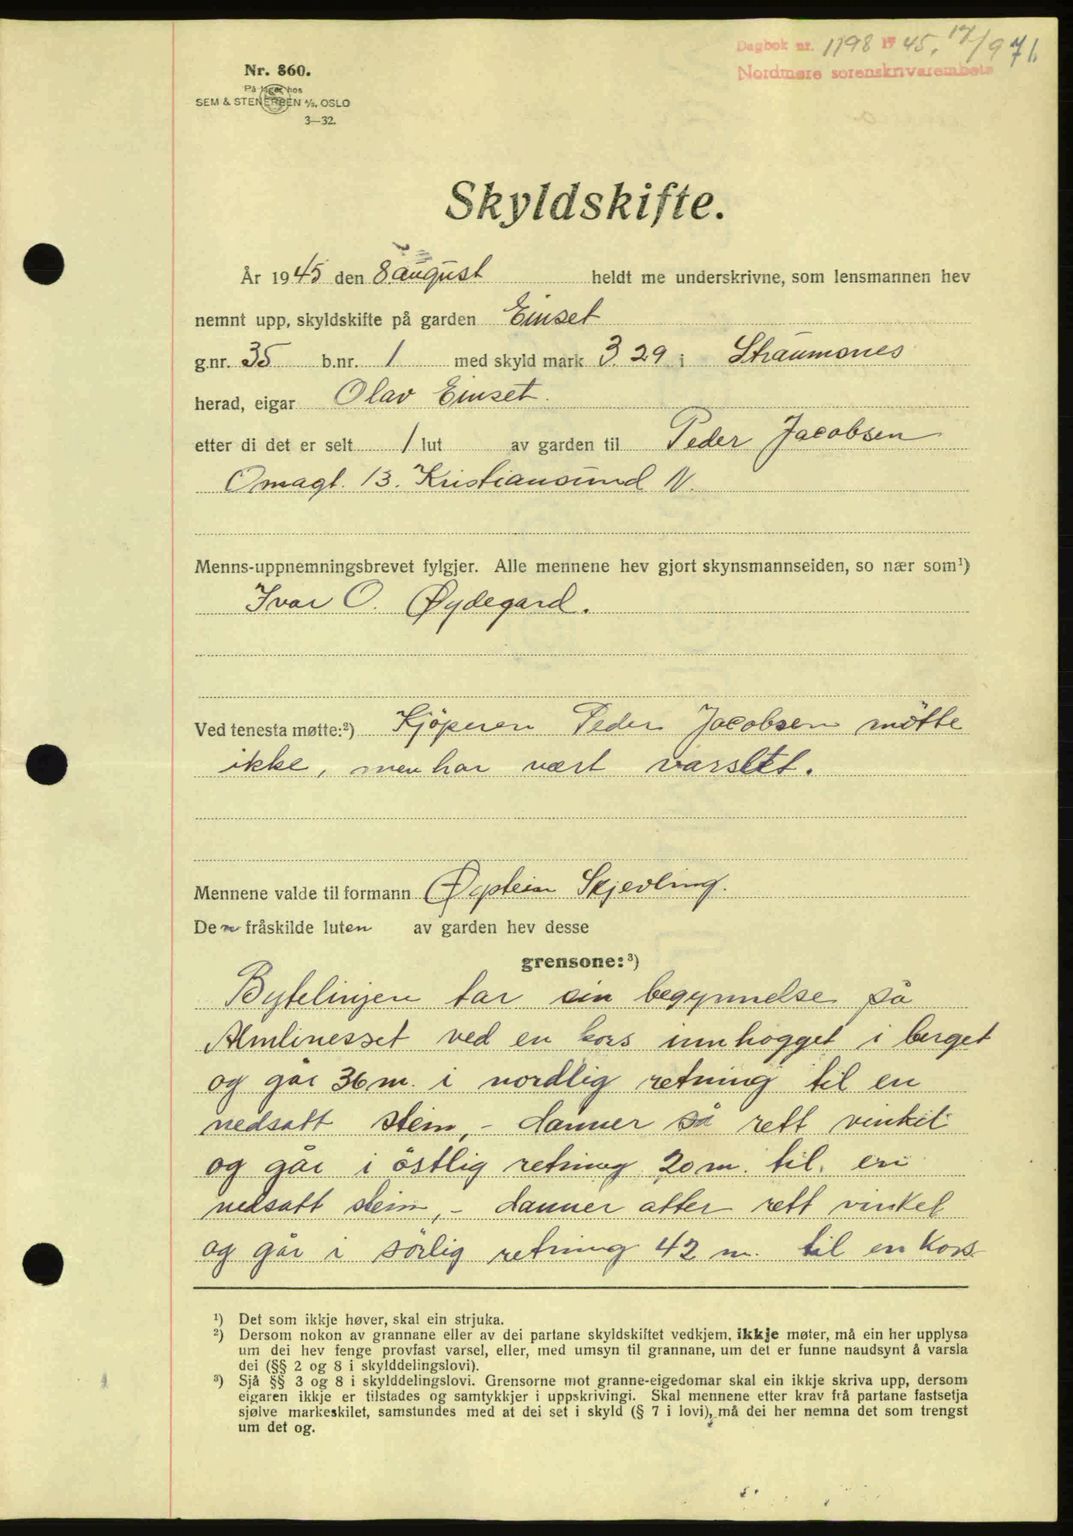 Dagbok nr. 1198 1945. 17/9 71.
Nordmøre sorenskrivarembete
Nr. 860.
På lager hos
SEM & STENERSEN A/S. OSLO
3—32.
Skyldskifte.
År 1945 den 8 august heldt me underskrivne, som lensmannen hev
nemnt upp, skyldskifte på garden Einset
g.nr. 35 b.nr. 1 med skyld mark 3.29 i Straumsnes
herad, eigar Olav Einset.
etter di det er selt 1 lut av garden til Peder Jacobsen
Omagt. 13. Kristiansund N.
Menns-uppnemningsbrevet fylgjer. Alle mennene hev gjort skynsmannseiden, so nær som¹)
Ivar O. Øydegard.
Ved tenesta møtte:²) Kjöperen Peder Jacobsen mötte
ikke, men har vært varslet.
Mennene valde til formann Øystein Skjevling.
Den fråskilde luten av garden hev desse
grensone:³)
Bytelinjen tar sin begynnelse på
Almlinesset ved en kors innhogget i berget
og går 36 m. i nordlig retning til en
nedsatt stein, - danner så rett vinkel
og går i östlig retning 20 m. til en
nedsatt stein, - danner atter rett vinkel
og går i sörlig retning 42 m. til en kors
¹) Det som ikkje høver, skal ein strjuka.
²) Dersom nokon av grannane eller av dei partane skyldskiftet vedkjem, ikkje møter, må ein her upplysa
um dei hev fenge provfast varsel, eller, med umsyn til grannane, um det er funne naudsynt å varsla
dei (§§ 2 og 8 i skylddelingslovi).
³) Sjå §§ 3 og 8 i skylddelingslovi. Grensorne mot granne-eigedomar skal ein ikkje skriva upp, dersom
eigaren ikkje er tilstades og samtykkjer i uppskrivingi. Skal mennene etter krav frå partane fastsetja
sjølve markeskilet, samstundes med at dei set i skyld (§ 7 i lovi), må dei her nemna det som trengst
um det og.